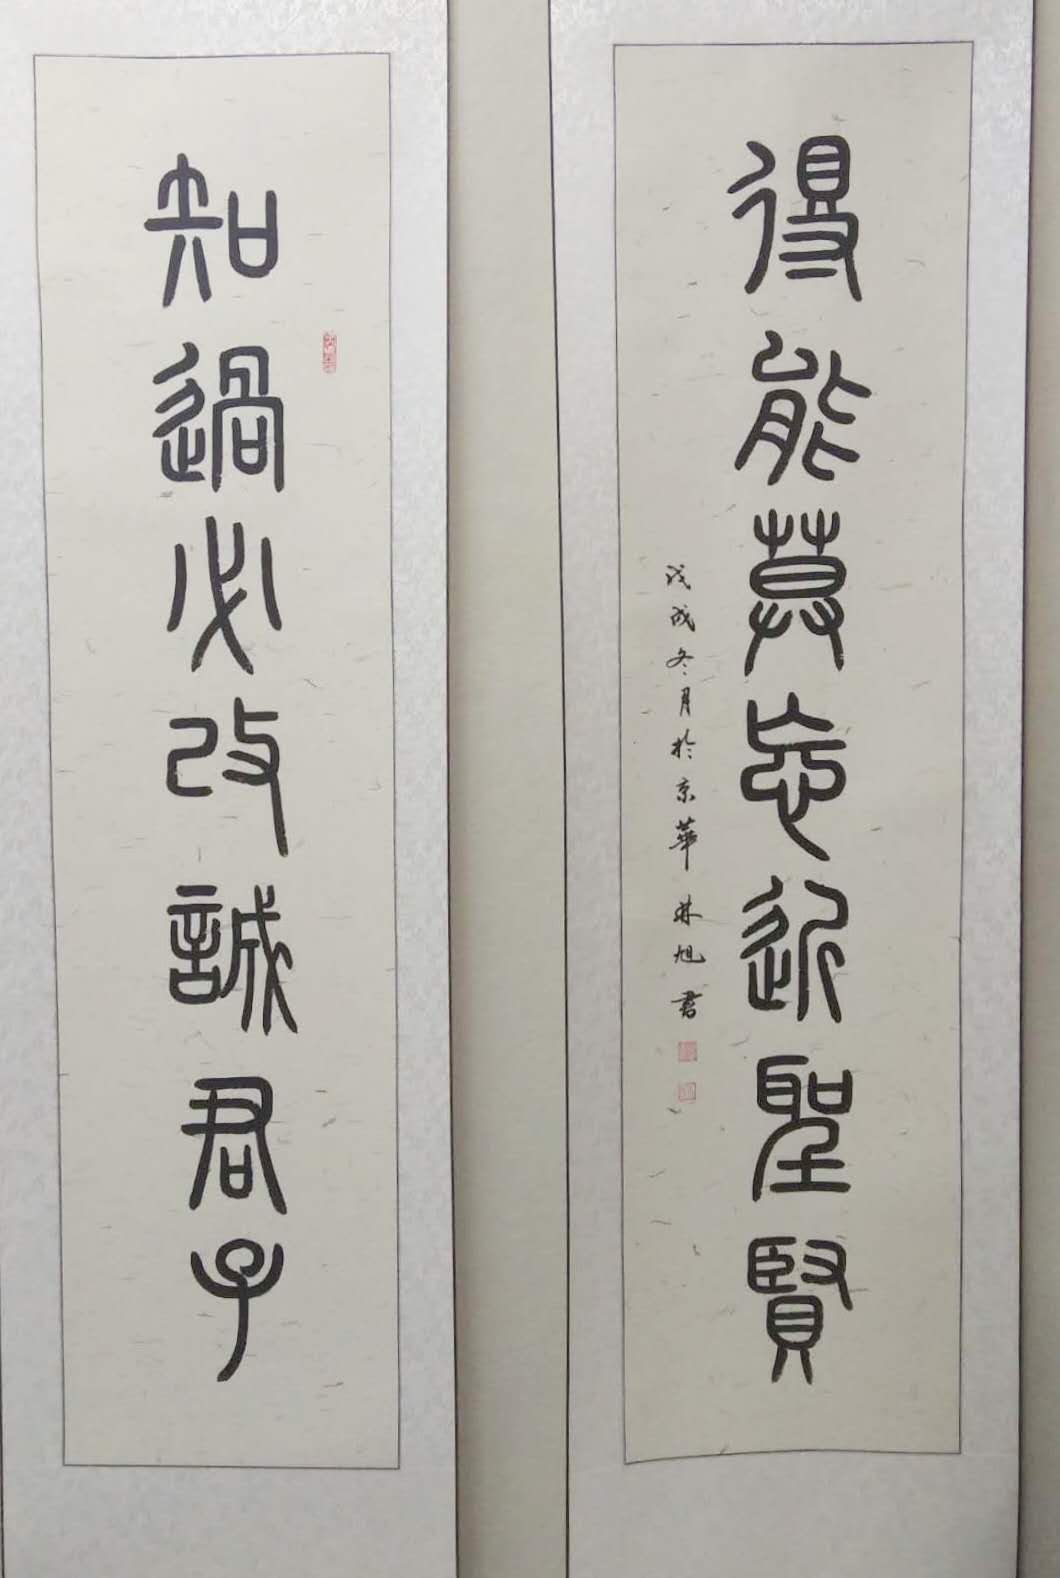 知過必改誠君子
得能莫忘近聖賢
戊戌冬月於京華 林旭書